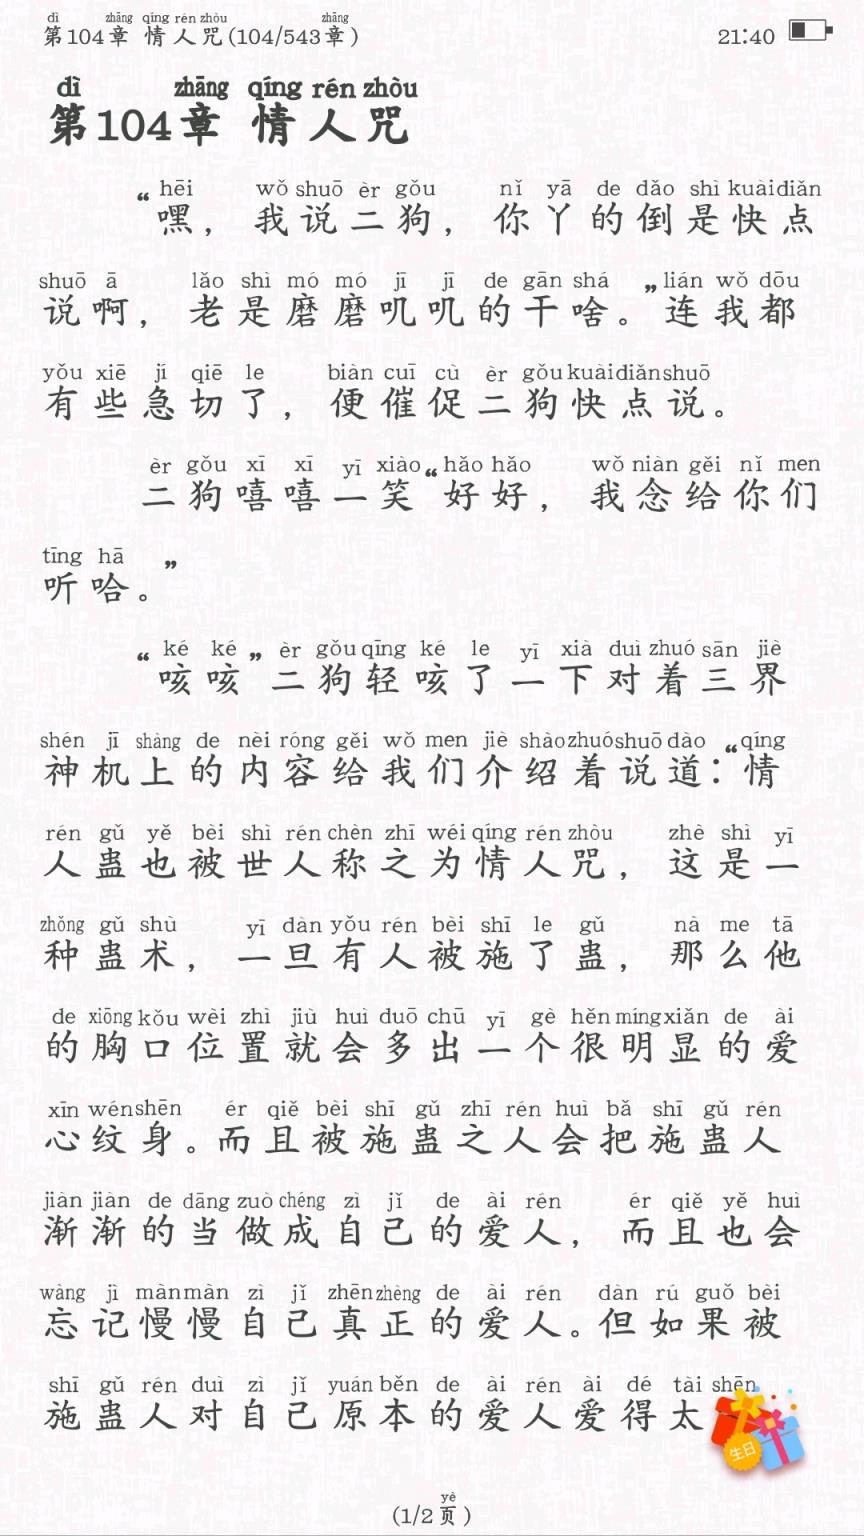 dì zhāng qíng rén zhòu zhāng
第104章 情人咒(104/543章) 21:40
dì zhāng qíng rén zhòu
第104章 情人咒
hēi wǒ shuō èr gǒu nǐ yā de dǎo shì kuài diǎn
“嘿，我说二狗，你丫的倒是快点
shuō ā lǎo shì mó mó jī jī de gān shá lián wǒ dōu
说啊，老是磨磨叽叽的干啥。”连我都
yǒu xiē jí qiē le biàn cuī cù èr gǒu kuài diǎn shuō
有些急切了，便催促二狗快点说。
èr gǒu xī xī yī xiào hǎo hǎo wǒ niàn gěi nǐ men
二狗嘻嘻一笑“好好，我念给你们
tīng hā
听哈。”
ké ké èr gǒu qīng ké le yī xià duì zhuó sān jiè
“咳咳”二狗轻咳了一下对着三界
shén jī shàng de nèi róng gěi wǒ men jiè shào zhuó shuō dào qíng
神机上的内容给我们介绍着说道：“情
rén gǔ yě bèi shì rén chèn zhī wéi qíng rén zhòu zhè shì yī
人蛊也被世人称之为情人咒，这是一
zhǒng gǔ shù yī dàn yǒu rén bèi shī le gǔ nà me tā
种蛊术，一旦有人被施了蛊，那么他
de xiōng kǒu wèi zhì jiù huì duō chū yī gè hěn míng xiǎn de ài
的胸口位置就会多出一个很明显的爱
xīn wén shēn ér qiě bèi shī gǔ zhī rén huì bǎ shī gǔ rén
心纹身。而且被施蛊之人会把施蛊人
jiàn jiàn de dāng zuò chéng zì jǐ de ài rén ér qiě yě huì
渐渐的当做成自己的爱人，而且也会
wàng jì màn màn zì jǐ zhēn zhèng de ài rén dàn rú guǒ bèi
忘记慢慢自己真正的爱人。但如果被
shī gǔ rén duì zì jǐ yuán běn de ài rén ài dé tài shēn
施蛊人对自己原本的爱人爱得太
生日
yè
(1/2页)